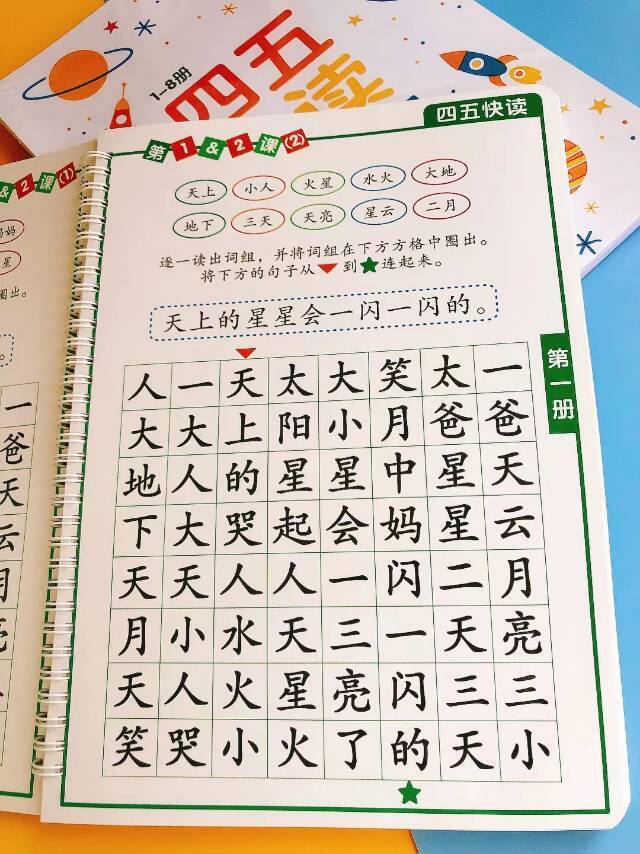 1-8册
四五
读
四五快读
第1&2课(2)
天上 小人 火星 水火 大地
地下 三天 天亮 星云 二月
逐一读出词组，并将词组在下方方格中圈出。
将下方的句子从▼到★连起来。
天上的星星会一闪一闪的。
第一册
人一天太大笑太一
大大上阳小月爸爸
地人的星星中星天
下大哭起会妈星云
天天人人一闪二月
月小水天三一天亮
天人火星亮闪三三
笑哭小火了的天小
&2课(1)
妈妈
星
圈出。
一
爸
天
云
月
亮